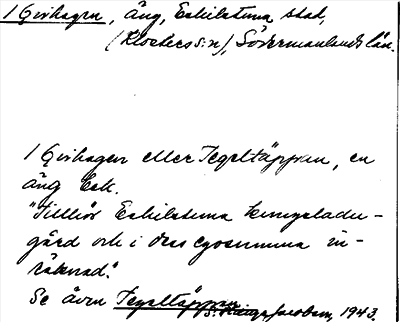 / Qvihagen, äng, Eskilstuna stad,
(Klosters s:n), Södermanlands län.
/ Qvihagen eller Tegeltäppan, en
äng besk.
"Tillhör Eskilstuna kungsladu-
gård och i dess egosumma in-
räknad."
Se även Tegeltäppan
Jacobson, 1943.